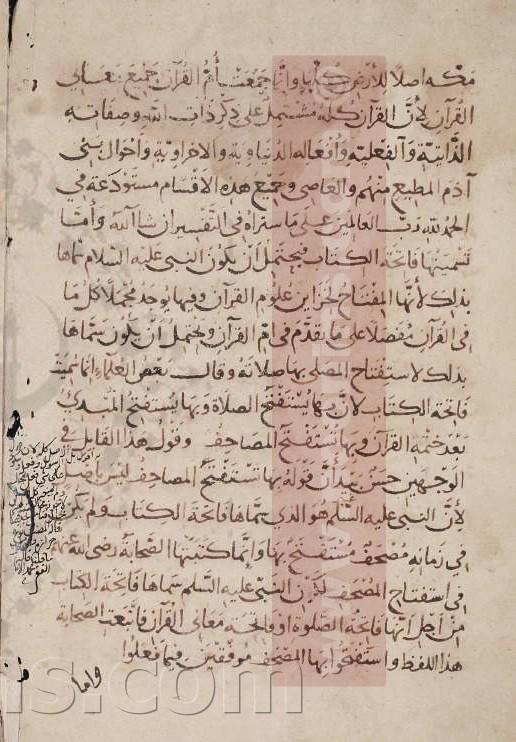 مكه اصلا للأرض كلها وانما جمعت أم القرآن جميع معاني
القرآن لأن القرآن كله مشتمل على ذكر ذات الله وصفاته
الذاتية والفعلية وأفعاله الدنياوية والاخراوية واحوال بني
آدم المطيع منهم والعاصي وجميع هذه الاقسام مستودعة في
الحمد لله رب العالمين على ما ستراه في التفسير ان شا الله وأما
تسميتها فاتحة الكتاب فيحتمل أن يكون النبي عليه السلام سماها
بذلك لأنها المفتاح لخزاين علوم القرآن وفيها يوجد مجملا كل ما
في القرآن مفصلا على ما تقدم في ام القرآن ويحتمل أن يكون سماها
بذلك لاستفتاح المصلي بها صلاته وقال بعض العلماء انما سميت
فاتحة الكتاب لان بها يستفتح الصلاة وبها يستفتح المبتدئ
بعد ختمه القرآن وبها تستفتح المصاحف وقول هذا القايل في
الوجهين حسن بيد أن قوله بها تستفتح المصاحف ليس بأصل
لأن النبي عليه السلم هو الذي سماها فاتحة الكتاب ولم يكن
في زمانه مصحف مستفتح بها وانما كتبتها الصحابة رضي الله عنهم
في استفتاح المصحف لكون النبي عليه السلم سماها فاتحة الكتاب
من اجل انها فاتحة الصلوة او فاتحة معاني القرآن فاتبعت الصحابة
هذا اللفظ واستفتحوا بها المصحف موفقين فيما فعلوا
واما